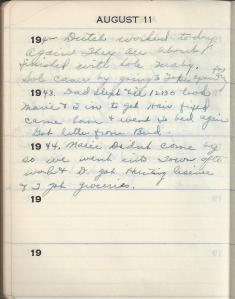 AUGUST 11
194 Dutch worked today
again They are about
finished with hole
Sob came by going to
1943. Dad slept till 12:30 took
Marie & I in to get Hair fixed
came home & went to bed again
Got letter from Bud.
1944. Marie Didnt come by
so we went into Town after
work & D. got Hunting license
& I got groceries.
19
19